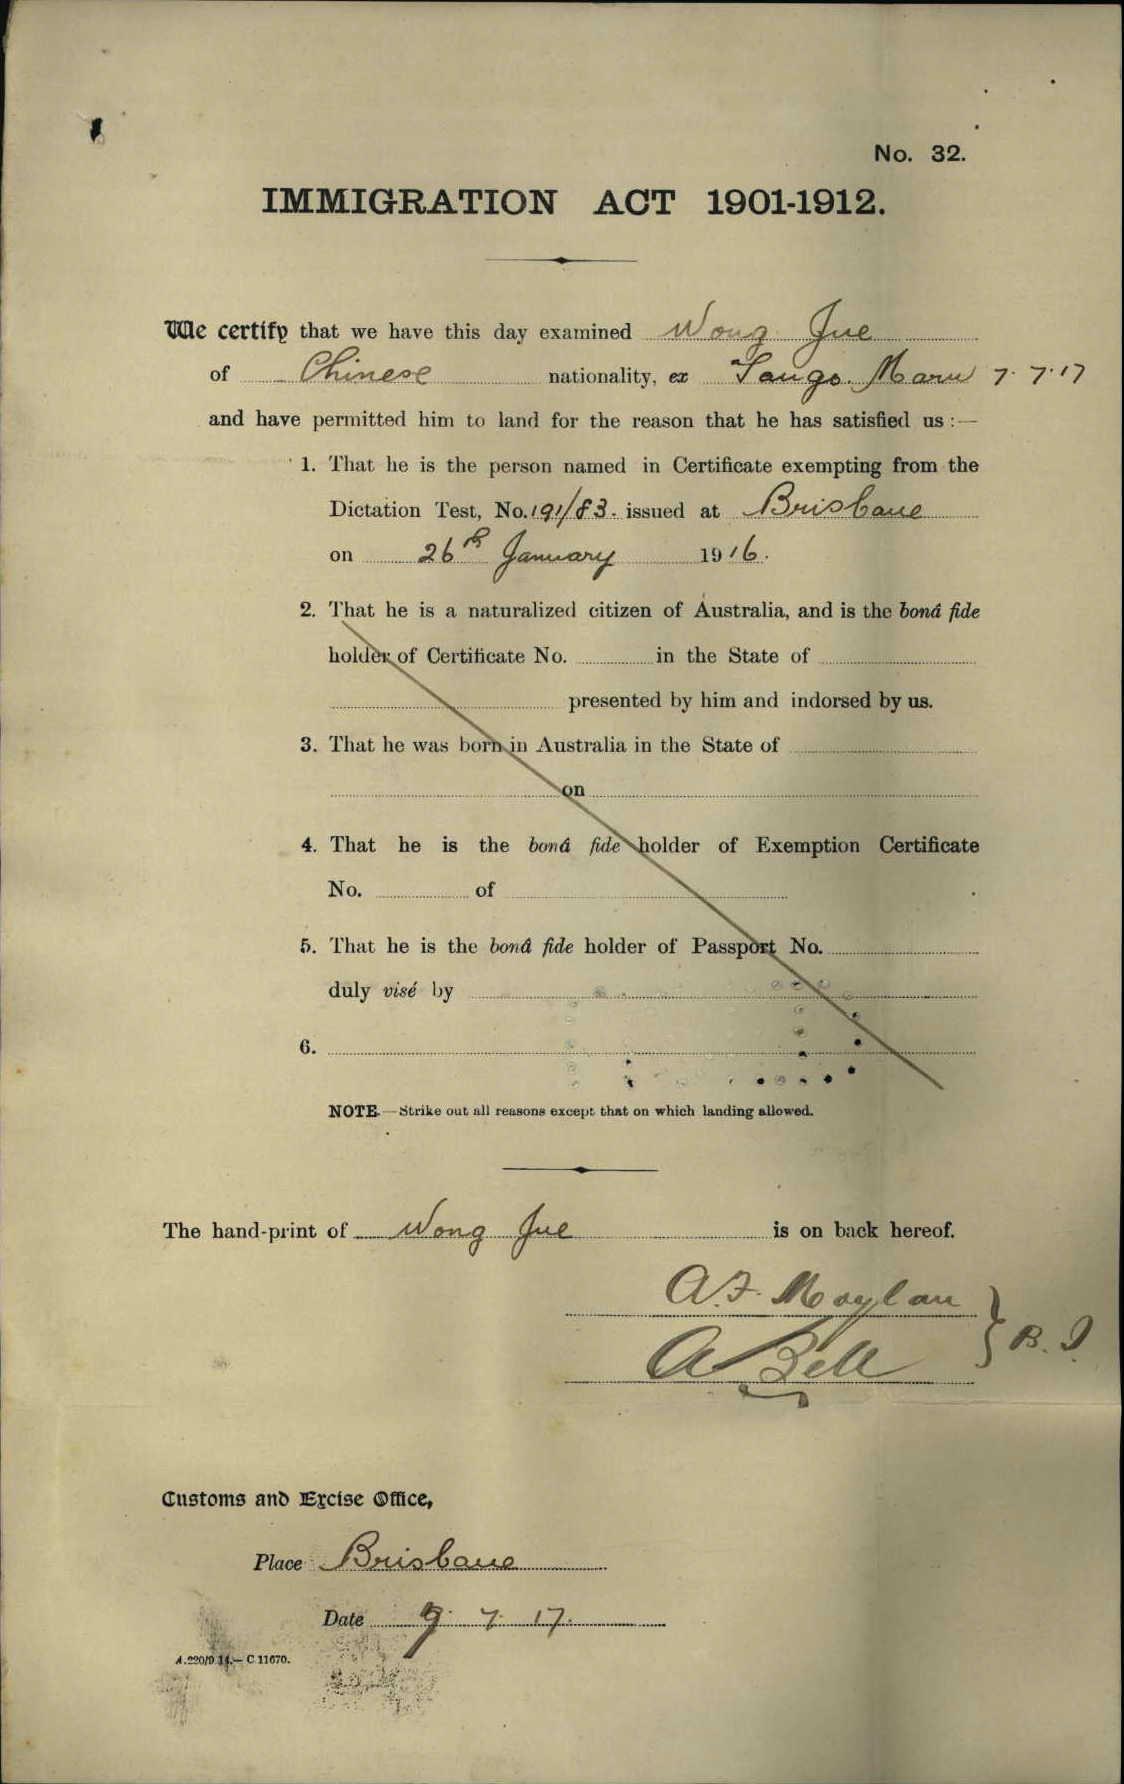 No. 32.
IMMIGRATION ACT 1901-1912.
We certify that we have this day examined Wong Jue
of Chinese nationality, ex Tango Maru 7.7.17
and have permitted him to land for the reason that he has satisfied us :—
1. That he is the person named in Certificate exempting from the
Dictation Test, No. 191/83. issued at Brisbane
on 26th January 1916.
2. That he is a naturalized citizen of Australia, and is the bonâ fide
holder of Certificate No. in the State of
presented by him and indorsed by us.
3. That he was born in Australia in the State of
on
4. That he is the bonâ fide holder of Exemption Certificate
No. of
5. That he is the bonâ fide holder of Passport No.
duly visé by
6.
NOTE.—Strike out all reasons except that on which landing allowed.
The hand-print of Wong Jue is on back hereof.
A.F. Moylan
A Bell } B. I.
Customs and Excise Office,
Place Brisbane
Date 9. 7. 17.
A.220/9.14.—C 11670.